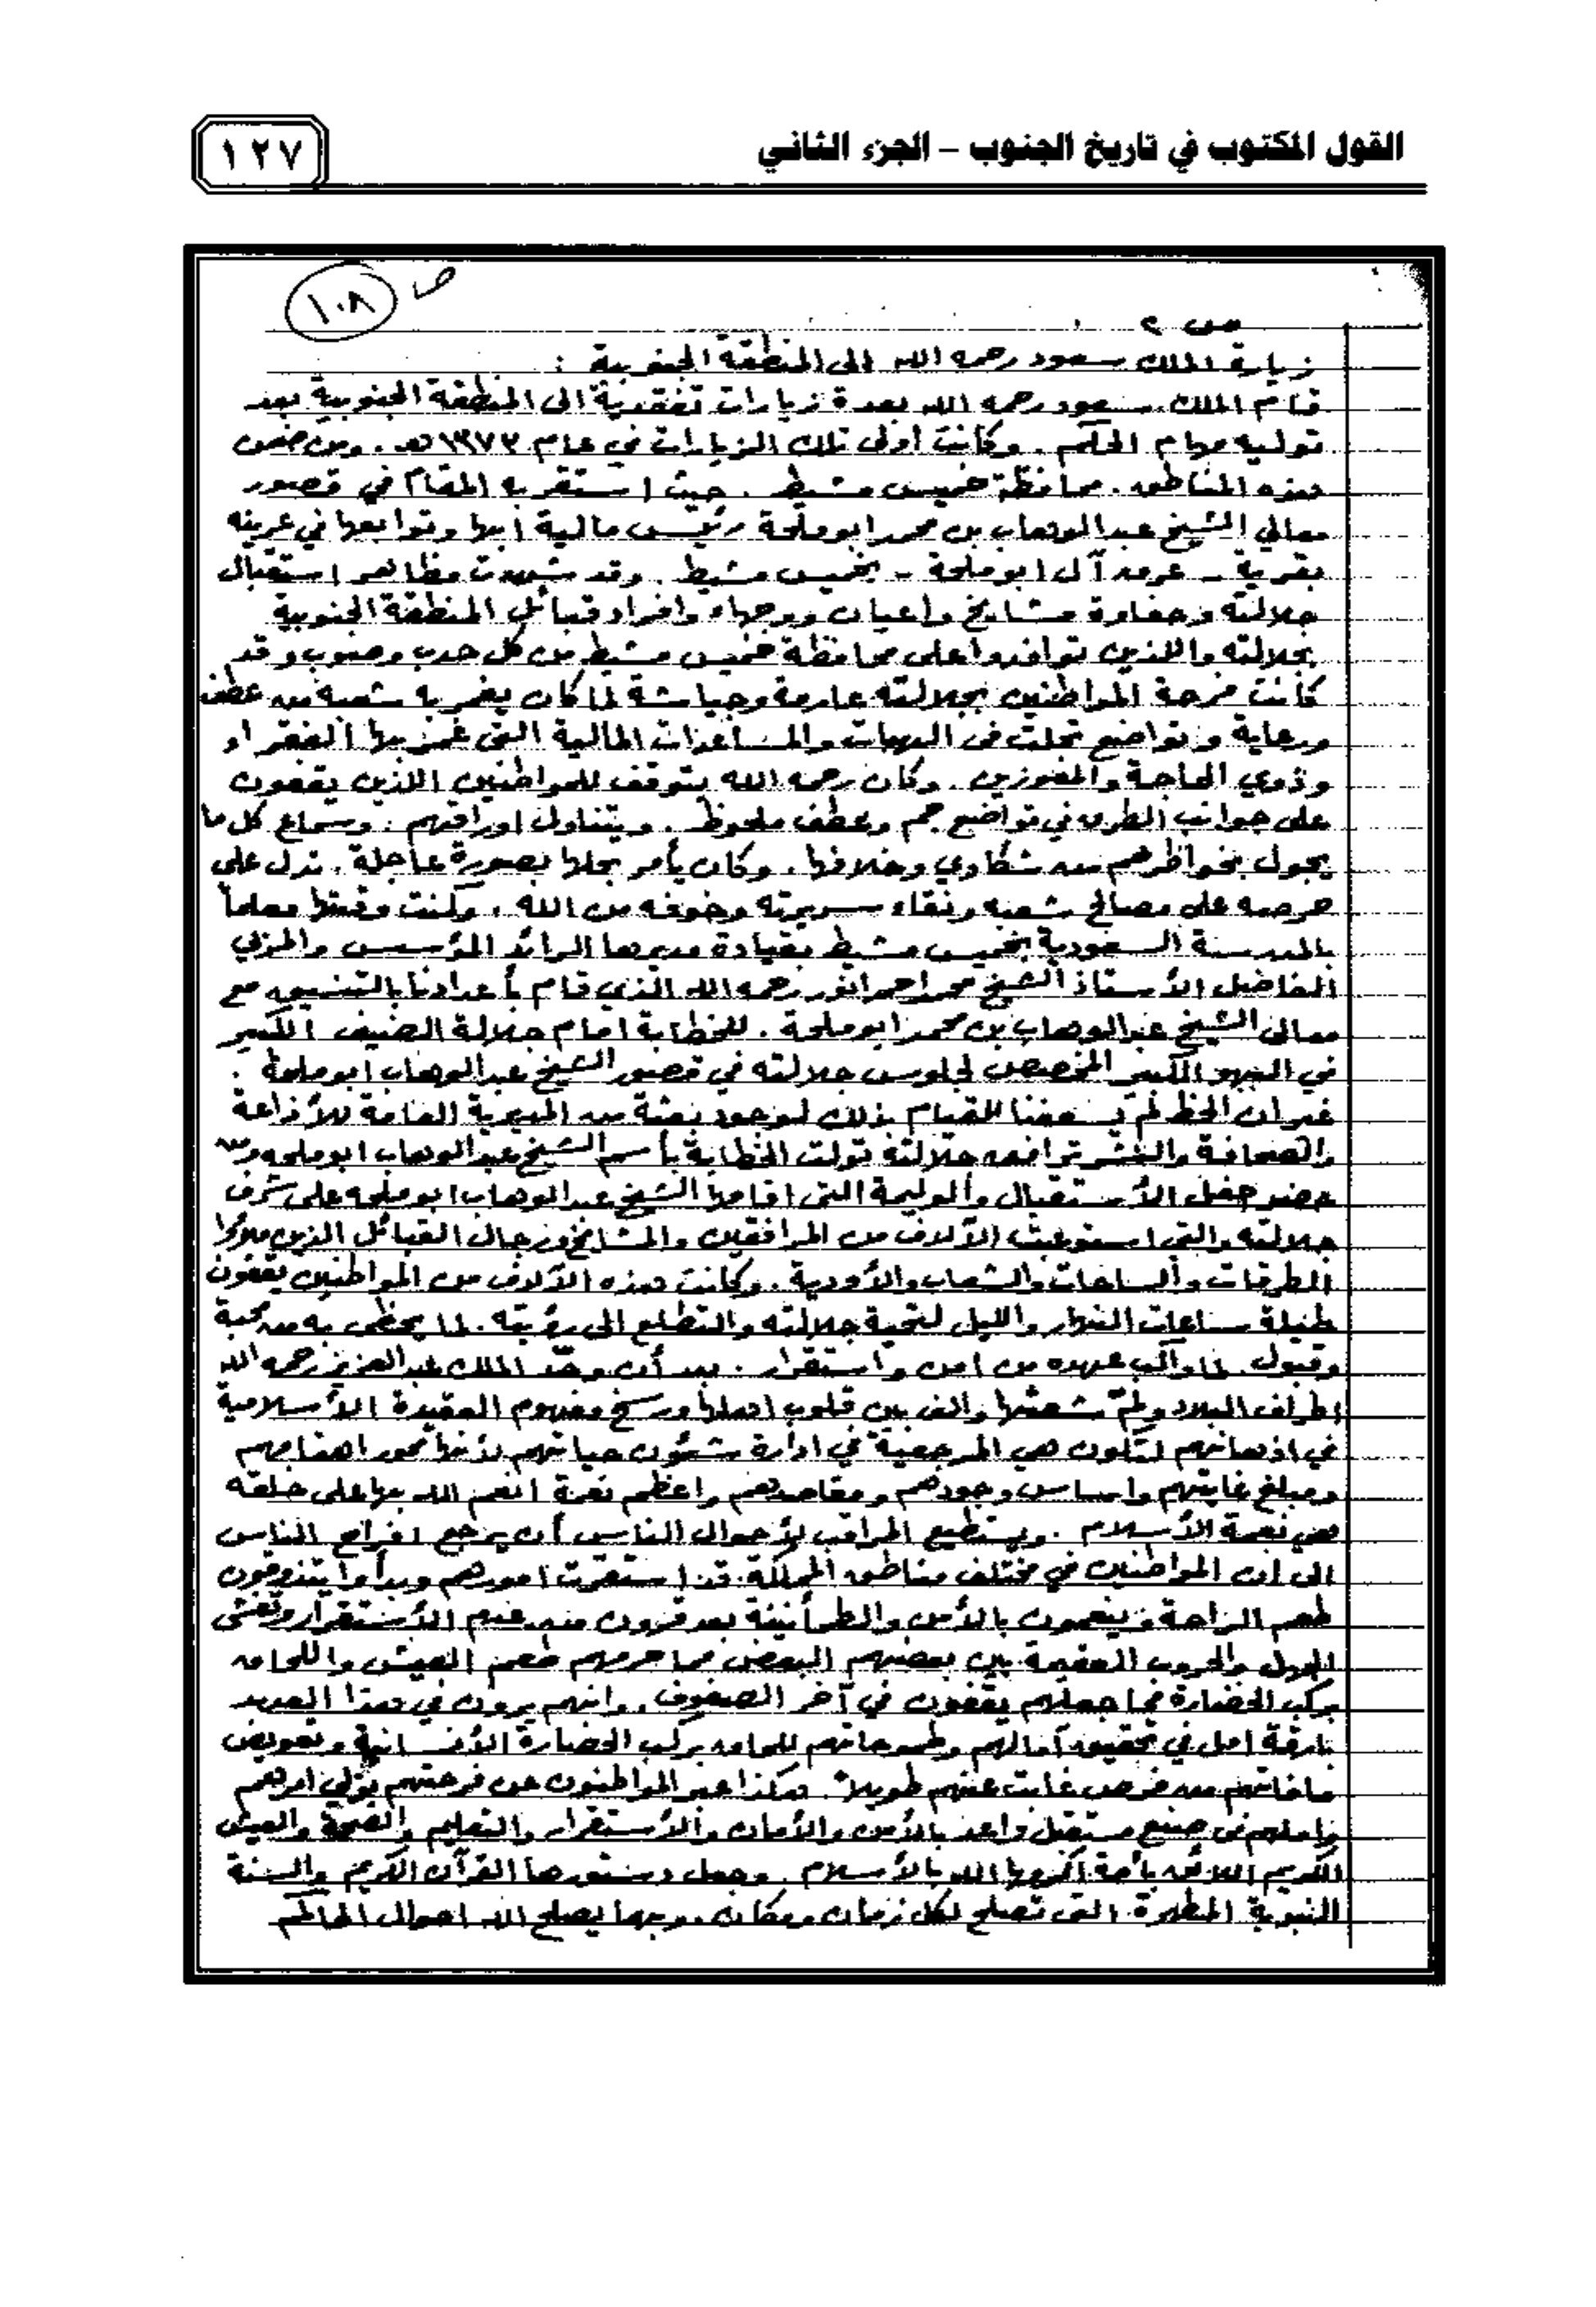 القول المكتوب في تاريخ الجنوب – الجزء الثاني
١٢٧
ص ١٠٨
ص ٢
زيارة الملك سعود رحمه الله الى المنطقة الجنوبية :
قام الملك سعود رحمه الله بعدة زيارات تفقدية الى المنطقة الجنوبية بعد
توليه مهام الحكم . وكانت اولى تلك الزيارات في عام ١٣٧٣هـ . ومن ضمن
هذه المناطق . محافظة خميس مشيط . حيث استقر به المقام في قصور
معالي الشيخ عبدالوهاب بن محمد ابوملحة رئيس مالية ابها وتوابعها في
بقرية – عرق آل ابوملحة – بخميس مشيط . وقد شهدت مظاهر استقبال
جلالته وحفاوة مشايخ واعيان ووجهاء وافراد قبائل المنطقة الجنوبية
بجلالته واللذين توافدوا على محافظة خميس مشيط من كل حدب وصوب وقد
كانت فرحة المواطنين بجلالته عارمة وجياشة لما كان يغمر به شعبه من عطف
ورعاية وتواضع تجلت في الهبات والمساعدات المالية التي غمر بها الفقراء
وذوي الحاجة والمعوزين . وكان رحمه الله يتوقف للمواطنين اللذين يقفون
على جوانب الطرق في تواضع جم وعطف ملحوظ . ويتناول اوراقهم . وسماع كل ما
يجول بخواطرهم من شكاوي وخلافها . وكان يأمر بحلها بصورة عاجلة . تدل على
حرصه على مصالح شعبه ونقاء سريرته وخوفه من الله . وكنت وقتها معلماً
بالمدرسة السعودية بخميس مشيط بقيادة مديرها الرائد المؤسس والمربي
الفاضل الأستاذ الشيخ محمد احمد انور رحمه الله الذي قام بأعدادنا بالتنسيق مع
معالى الشيخ عبدالوهاب بن محمد ابوملحة . للخطابة امام جلالة الضيف الكبير
في البهو الكبير المخصص لجلوس جلالته في قصور الشيخ عبدالوهاب ابوملحة .
غير ان الحظ لم يسعفنا للقيام بذلك لوجود بعثة من المديرية العامة للأذاعة
والصحافة والنشر ترافق جلالته تولت الخطابة بأسم الشيخ عبدالوهاب ابوملحه وقد
حضر حفل الأستقبال والوليمة التي اقامها الشيخ عبدالوهاب ابوملحه على شرف
جلالته والتي استوعبت الآلاف من المرافقين والمشايخ ورجال القبائل الذين ملأوا
الطرقات والساحات والشعاب والأودية . وكانت هذه الآلاف من المواطنين يقفون
طيلة ساعات النهار والليل لتحية جلالته والتطلع الى رؤيته . لما يحظى به من محبة
وقبول . لما واكب عهده من امن واستقرار . بعد أن وحّد الملك عبدالعزيز رحمه الله
اطراف البلاد ولمّ شعثها والف بين قلوب اهلها ورسخ مفهوم العقيدة الأسلامية
في اذهانهم لتكون هي المرجعية في ادارة شئون حياتهم لأنها محور اهتمامهم
ومبلغ غايتهم واساس وجودهم ومقاصدهم واعظم نعمة انعم الله بها على خلقه
هي نعمة الأسلام . ويستطيع المراقب لأحوال الناس أن يرجع افراح الناس
الى ان المواطنين في مختلف مناطق المملكة قد استقرت امورهم وبدأوا يتذوقون
طعم الراحة وينعمون بالأمن والطمأنينة بعد قرون من عدم الأستقرار وتفشي
الجهل والحروب العقيمة بين بعضهم البعض مما حرمهم طعم العيش واللحاق
بركب الحضارة مما جعلهم يقفون في آخر الصفوف . وانهم يرون في هذا العهد
بارقة امل في تحقيق آمالهم وطموحاتهم للحاق بركب الحضارة الأنسانية وتعويض
مافاتهم من فرص غابت عنهم طويلاً . هكذا عبر المواطنون عن فرحتهم بولي امرهم
واملهم في صنع مستقبل واعد بالأمن والأمان والأستقرار والتعليم والصحة والعيش
الكريم اللائق بأمة اكرمها الله بالأسلام . وجعل دستورها القرآن الكريم والسنة
النبوية المطهرة التي تصلح لكل زمان ومكان . وبهما يصلح الله احوال الحاكم